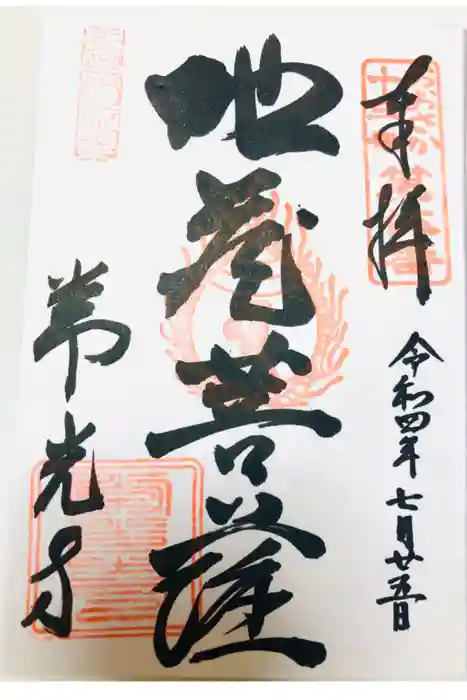 奉拝
令和四年七月廿五日
地蔵菩薩
常光寺